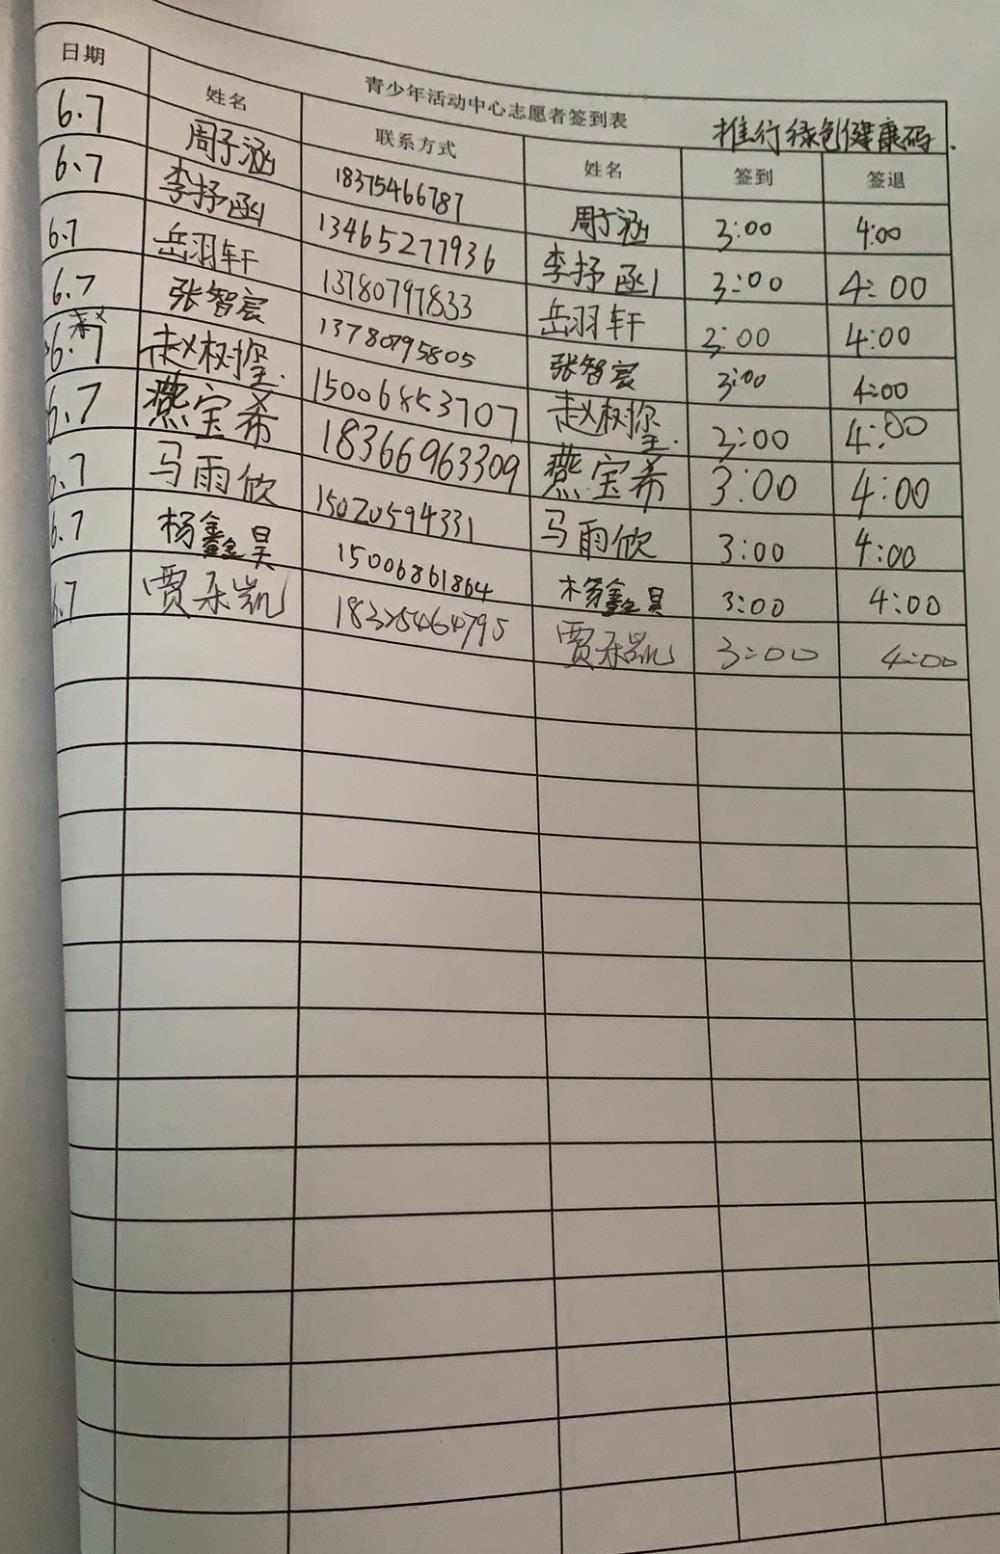 青少年活动中心志愿者签到表 推行绿色健康码.
日期 姓名 联系方式 姓名 签到 签退
6.7 周子涵 18375466787 周子涵 3:00 4:00
6.7 李抒函 13465277936 李抒函 3:00 4:00
6.7 岳羽轩 13780797833 岳羽轩 3:00 4:00
6.7 张智宸 13780795805 张智宸 3:00 4:00
6.7 赵树玺. 15006853707 赵树玺. 3:00 4:00
6.7 燕宝希 18366963309 燕宝希 3:00 4:00
6.7 马雨欣 15020594331 马雨欣 3:00 4:00
6.7 杨鑫昊 15006861864 杨鑫昊 3:00 4:00
6.7 贾 凯 贾 凯 3:00 4:00